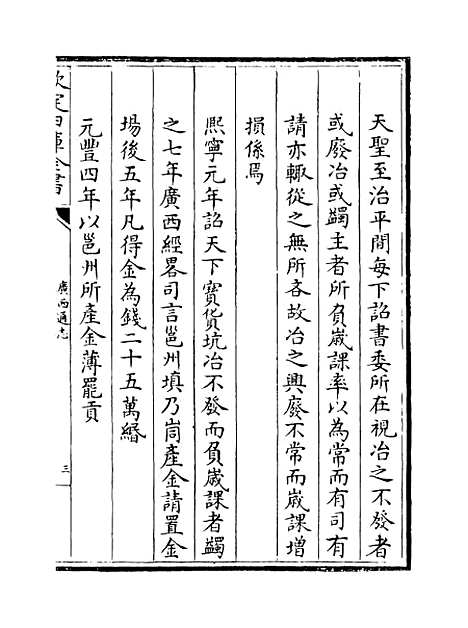 天聖至治平間每下詔書委所在視冶之不發者
或廢冶或蠲主者所負嵗課率以為常而有司有
請亦輒從之無所吝故冶之興廢不常而嵗課增
損係焉
熙寧元年詔天下寳貨坑冶不發而負嵗課者蠲
之七年廣西經畧司言邕州填乃峝產金請置金
場後五年凡得金為錢二十五萬緡
元豐四年以邕州所產金薄罷貢
欽定四庫全書
廣西通志
三